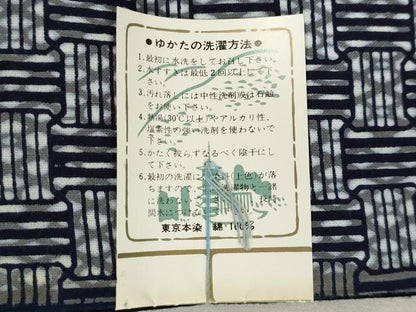 ●ゆかたの洗濯方法●
1.最初に水洗をしてお召し下さい。
2.水すすぎは最低2回以上して下
さい。
3.汚れ落しには中性洗剤或は石鹸
をお使い下さい。
4.熱湯(30℃以上)やアルカリ性、
塩素性の強い洗剤を使わないで
下さい。
5.かたく絞らずなるべく陰干にし
て下さい。
6.最初の洗濯に
色)が落
ちますの
洗濯物と
緒
に洗わな
間水につけ
東京本染 綿100%